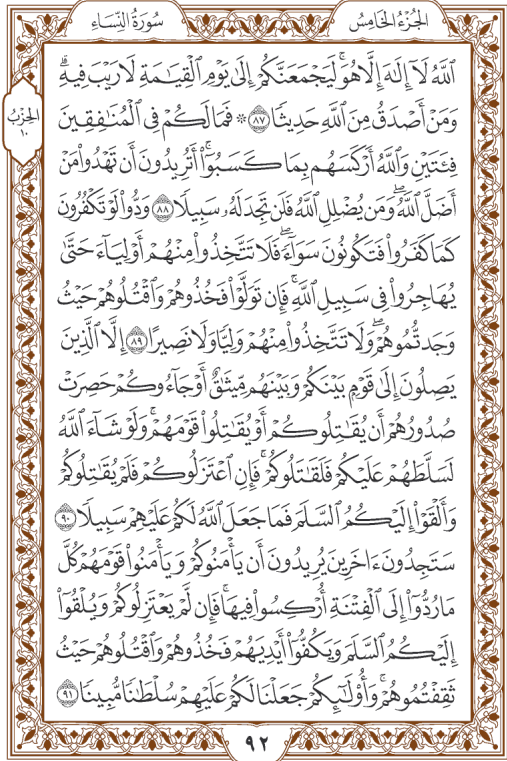 الجُزْءُ الخَامِسُ
سُورَةُ النِّسَاءِ
الحِزْبُ
١٠
ٱللَّهُ لَآ إِلَٰهَ إِلَّا هُوَۚ لَيَجْمَعَنَّكُمْ إِلَىٰ يَوْمِ ٱلْقِيَٰمَةِ لَا رَيْبَ فِيهِۗ
وَمَنْ أَصْدَقُ مِنَ ٱللَّهِ حَدِيثًا ٨٧ ۞ فَمَا لَكُمْ فِى ٱلْمُنَٰفِقِينَ
فِئَتَيْنِ وَٱللَّهُ أَرْكَسَهُم بِمَا كَسَبُوٓا۟ۚ أَتُرِيدُونَ أَن تَهْدُوا۟ مَنْ
أَضَلَّ ٱللَّهُۖ وَمَن يُضْلِلِ ٱللَّهُ فَلَن تَجِدَ لَهُۥ سَبِيلًا ٨٨ وَدُّوا۟ لَوْ تَكْفُرُونَ
كَمَا كَفَرُوا۟ فَتَكُونُونَ سَوَآءًۖ فَلَا تَتَّخِذُوا۟ مِنْهُمْ أَوْلِيَآءَ حَتَّىٰ
يُهَاجِرُوا۟ فِى سَبِيلِ ٱللَّهِۚ فَإِن تَوَلَّوْا۟ فَخُذُوهُمْ وَٱقْتُلُوهُمْ حَيْثُ
وَجَدتُّمُوهُمْۖ وَلَا تَتَّخِذُوا۟ مِنْهُمْ وَلِيًّا وَلَا نَصِيرًا ٨٩ إِلَّا ٱلَّذِينَ
يَصِلُونَ إِلَىٰ قَوْمٍۭ بَيْنَكُمْ وَبَيْنَهُم مِّيثَٰقٌ أَوْ جَآءُوكُمْ حَصِرَتْ
صُدُورُهُمْ أَن يُقَٰتِلُوكُمْ أَوْ يُقَٰتِلُوا۟ قَوْمَهُمْۚ وَلَوْ شَآءَ ٱللَّهُ
لَسَلَّطَهُمْ عَلَيْكُمْ فَلَقَٰتَلُوكُمْۚ فَإِنِ ٱعْتَزَلُوكُمْ فَلَمْ يُقَٰتِلُوكُمْ
وَأَلْقَوْا۟ إِلَيْكُمُ ٱلسَّلَمَ فَمَا جَعَلَ ٱللَّهُ لَكُمْ عَلَيْهِمْ سَبِيلًا ٩٠
سَتَجِدُونَ ءَاخَرِينَ يُرِيدُونَ أَن يَأْمَنُوكُمْ وَيَأْمَنُوا۟ قَوْمَهُمْ كُلَّ
مَا رُدُّوٓا۟ إِلَى ٱلْفِتْنَةِ أُرْكِسُوا۟ فِيهَاۚ فَإِن لَّمْ يَعْتَزِلُوكُمْ وَيُلْقُوٓا۟
إِلَيْكُمُ ٱلسَّلَمَ وَيَكُفُّوٓا۟ أَيْدِيَهُمْ فَخُذُوهُمْ وَٱقْتُلُوهُمْ حَيْثُ
ثَقِفْتُمُوهُمْۚ وَأُو۟لَٰٓئِكُمْ جَعَلْنَا لَكُمْ عَلَيْهِمْ سُلْطَٰنًا مُّبِينًا ٩١
٩٢